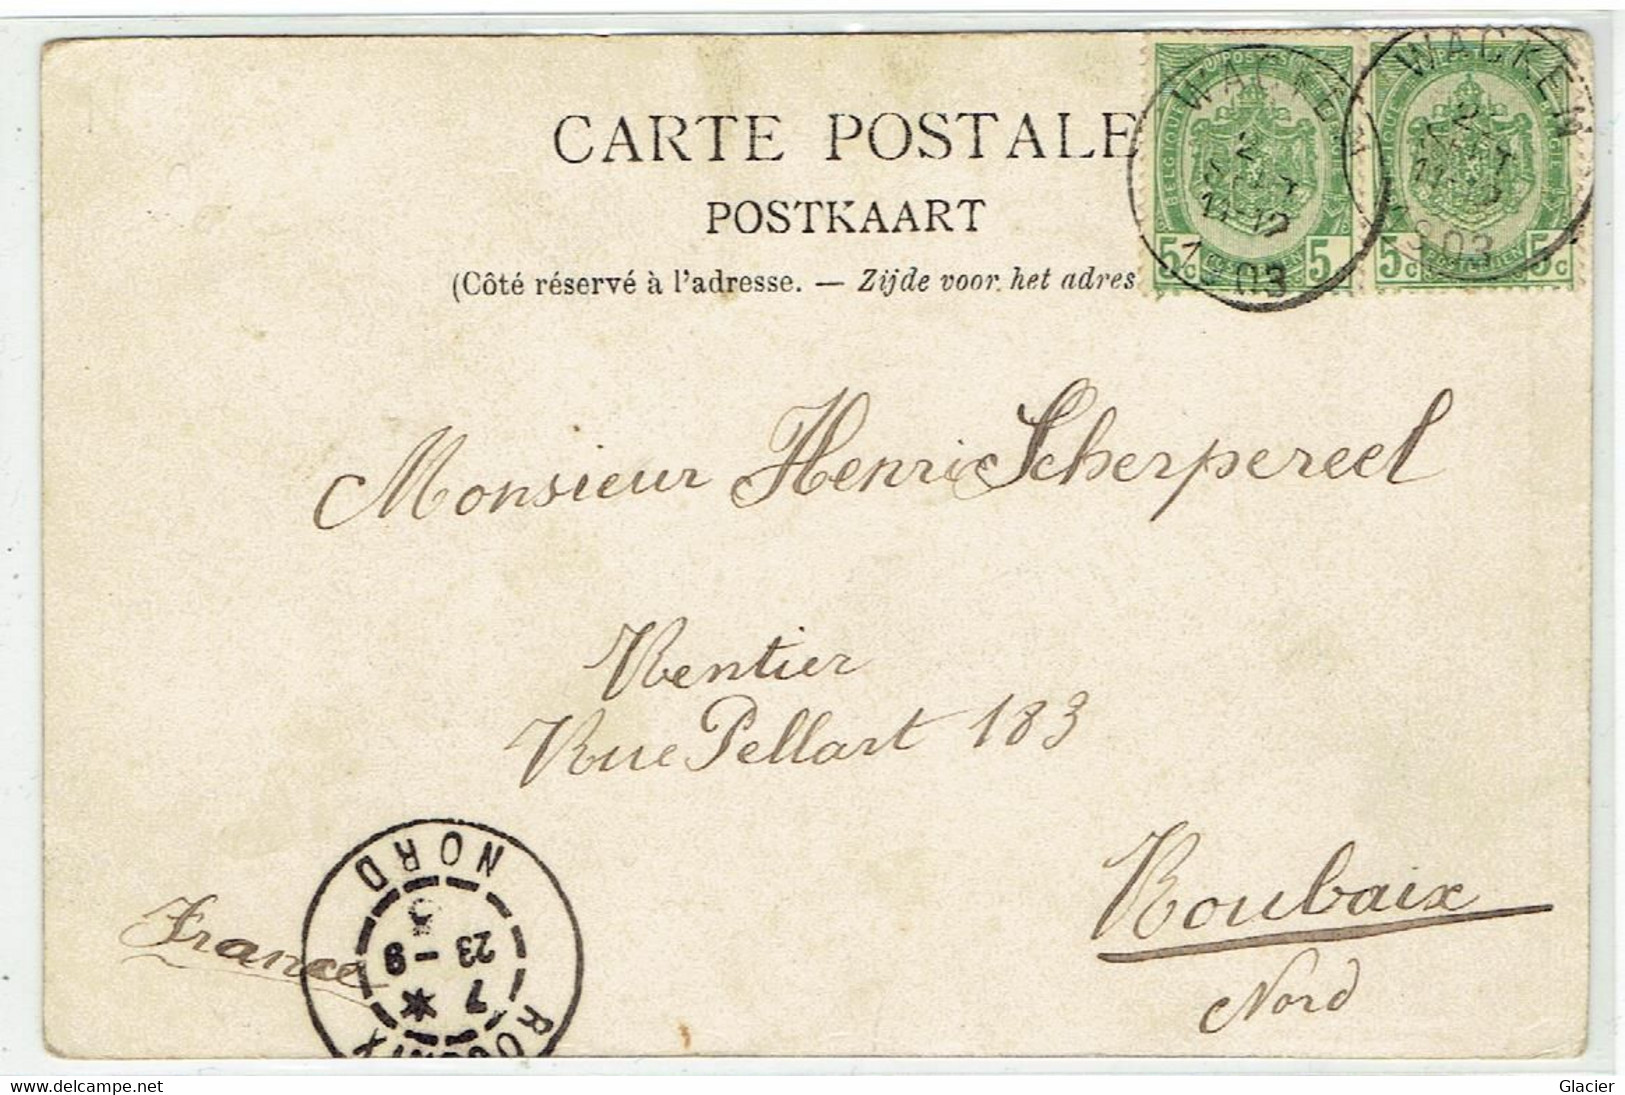 CARTE POSTALE
POSTKAART
(Côté réservé à l'adresse. — Zijde voor het adres
WACKEN
2
11-12
1903
BELGIQUE
5c 5
WACKEN
2
11-12
1903
5c 5c
Monsieur Henri Scherpereel
Rentier
Rue Pellart 183
Roubaix
Nord
France
ROUBAIX
NORD
7
23-9
www.delcampe.net
Glacier